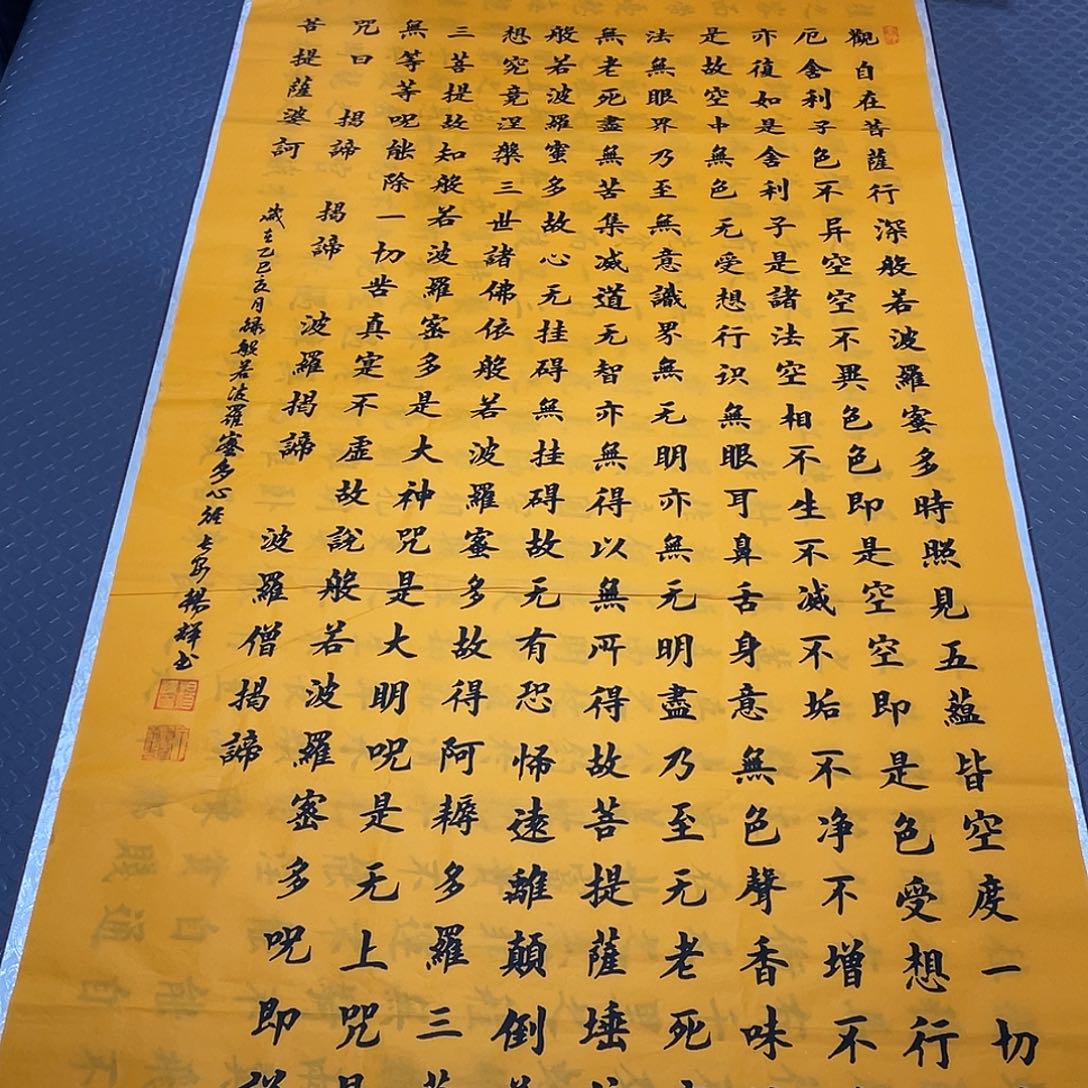 觀自在菩薩行深般若波羅蜜多時照見五蘊皆空度一切
厄舍利子色不异空空不異色色即是空空即是色受想行
亦復如是舍利子是諸法空相不生不滅不垢不净不增不
是故空中無色无受想行识無眼耳鼻舌身意無色聲香味
法無眼界乃至無意識界無无明亦無无明盡乃至无老死
無老死盡無苦集滅道无智亦無得以無所得故菩提薩埵
般若波羅蜜多故心无挂碍無挂碍故无有恐怖遠離顛倒
想究竟涅槃三世諸佛依般若波羅蜜多故得阿耨多羅三
三菩提故知般若波羅密多是大神咒是大明呪是无上咒
無等等呪能除一切苦真寔不虚故說般若波羅密多呪即
咒曰 揭諦 揭諦 波羅揭諦 波羅僧揭諦
菩提薩婆訶
歲在乙巳月録般若波羅蜜多心經長安楊輝书